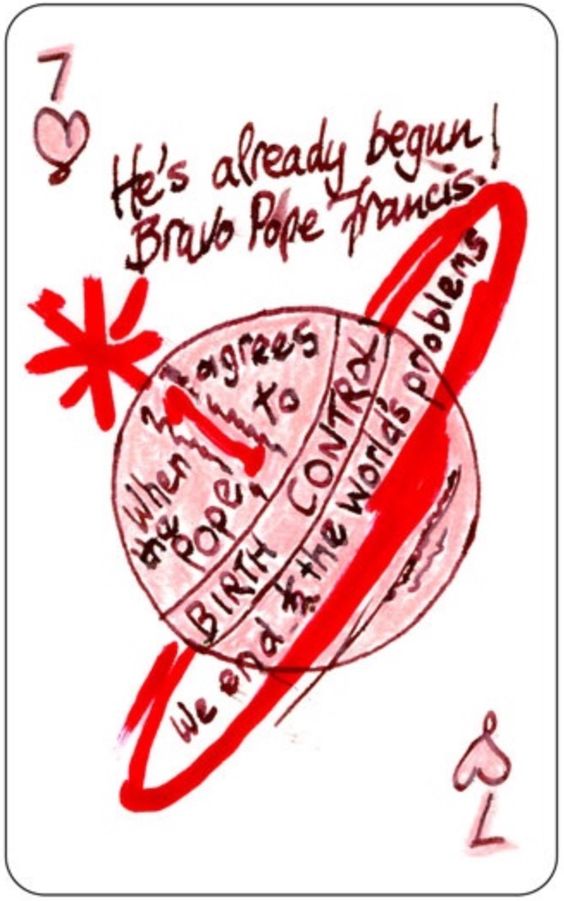 7
He's already begun!
Bravo Pope Francis.
When
the
POPE
agrees
to
BIRTH CONTROL
We end the world's problems
7